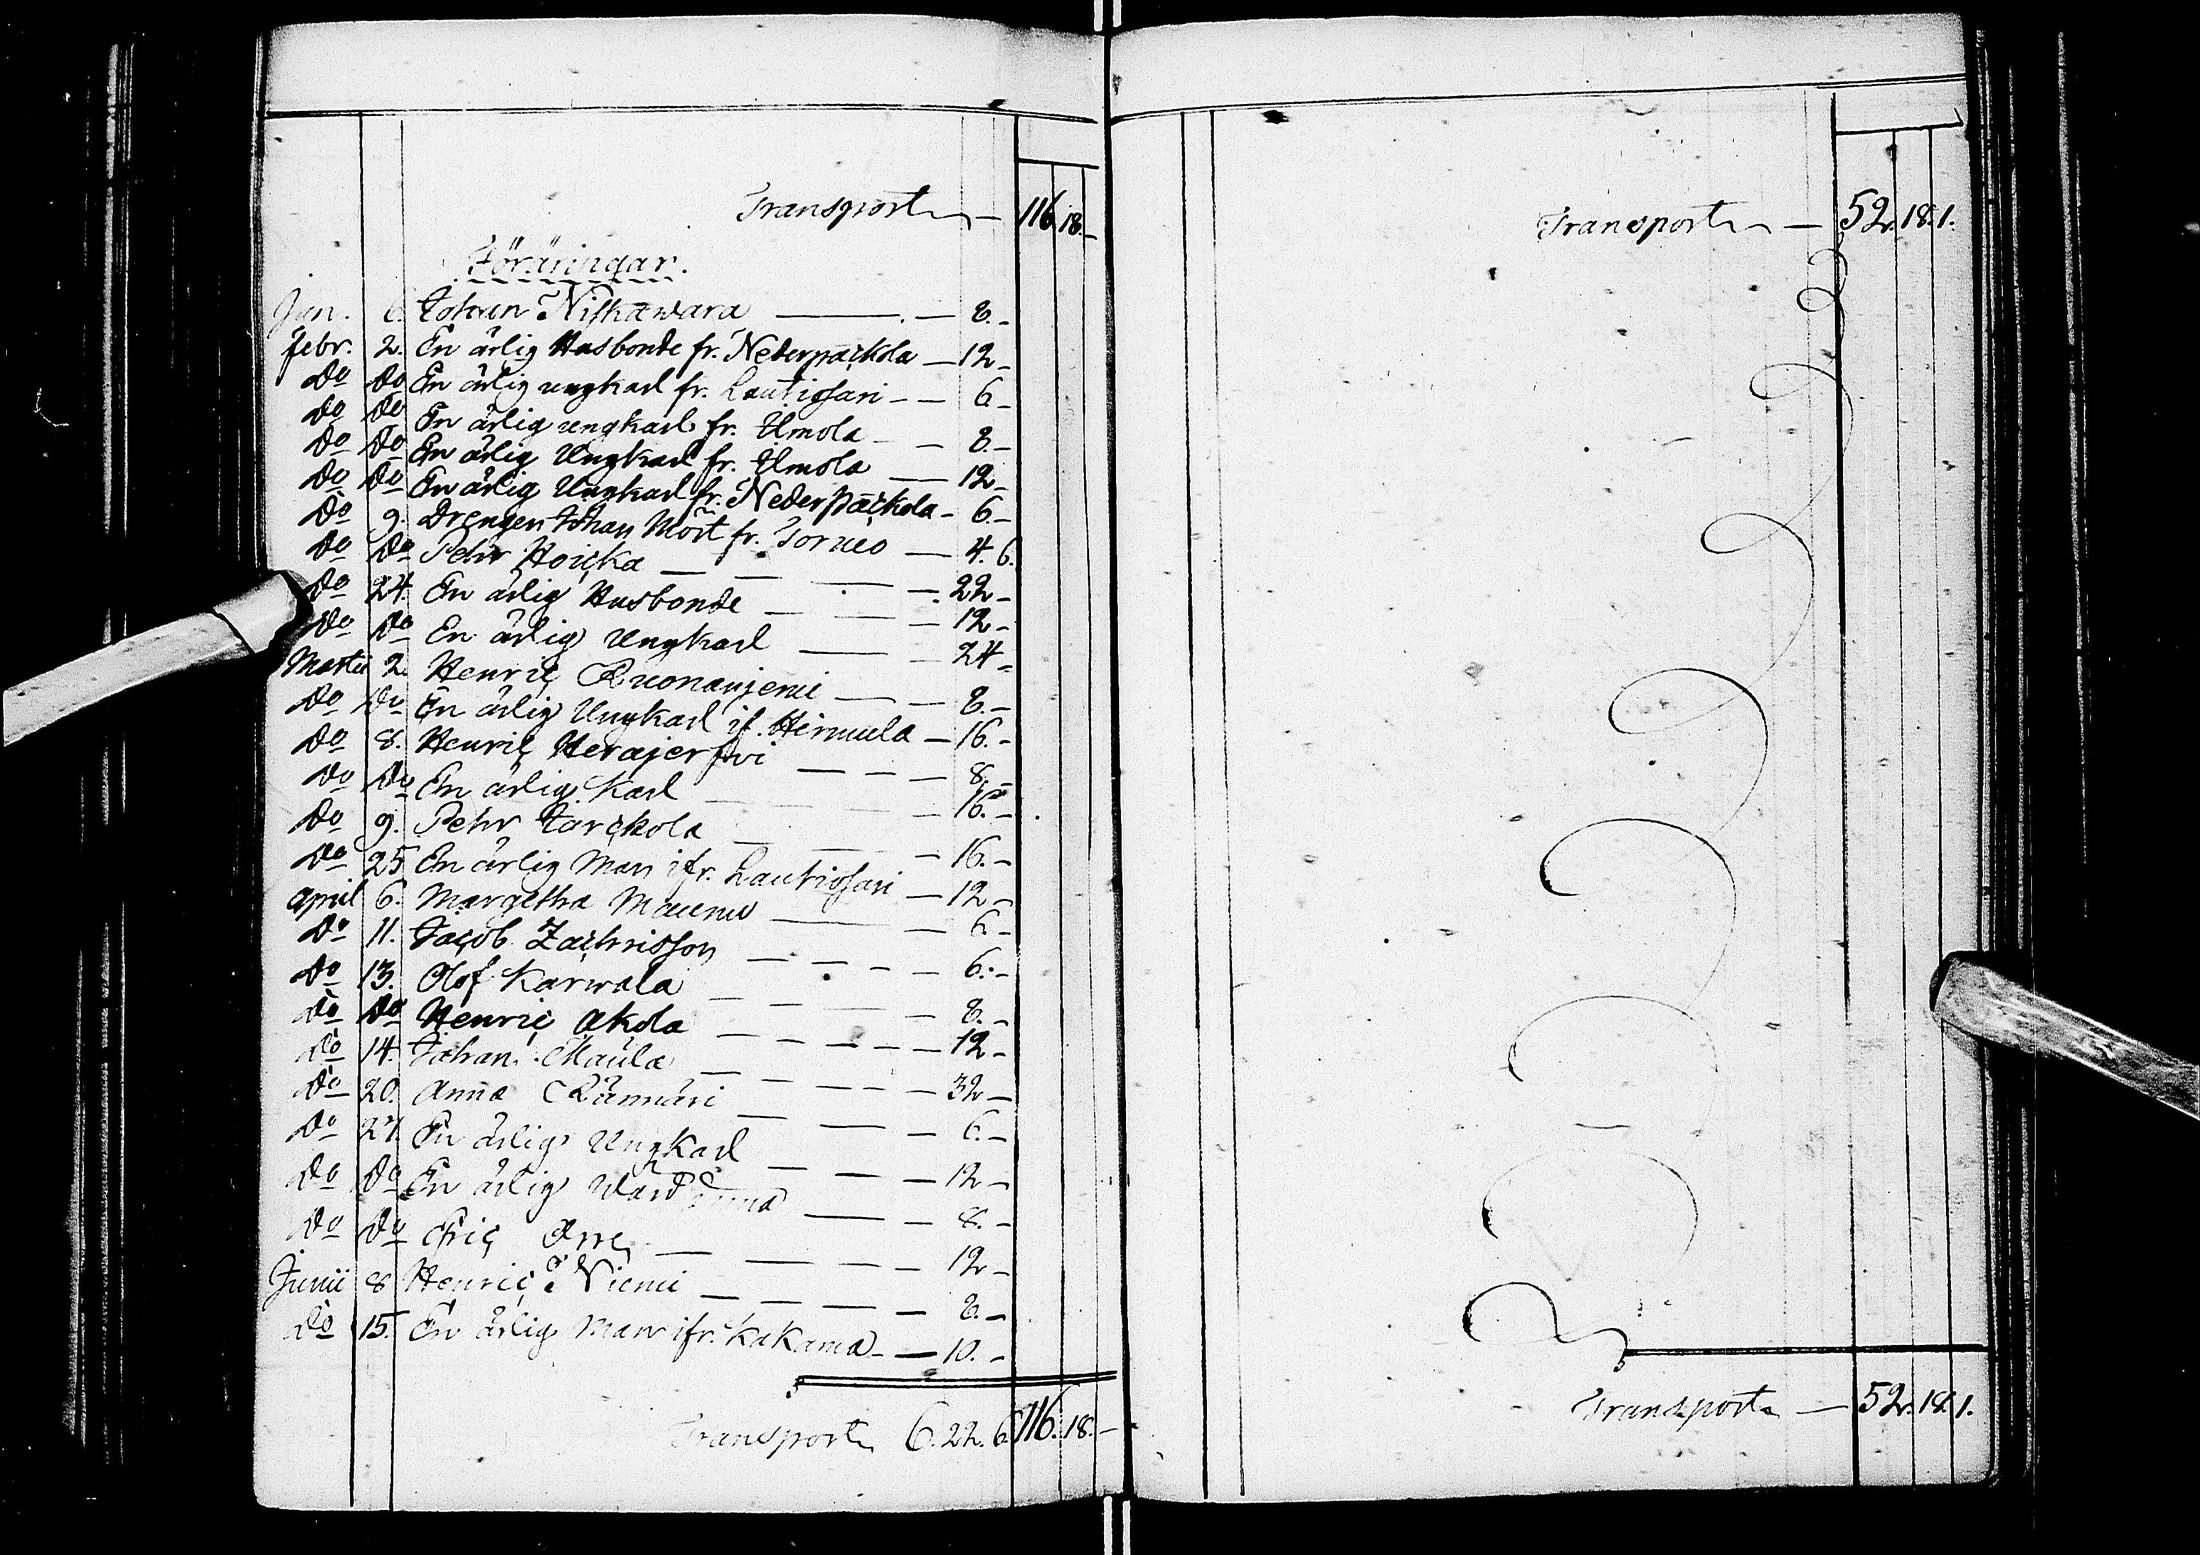 Transport — 116. 18. –
Föräringar.
Jan. 6. Johan Niskawara — 8. –
Febr. 2. En ärlig Husbonde fr. Nederpaickola — 12 –
Do Do En ärlig ungkarl fr. Lautiosari — 6 –
Do Do En ärlig ungkarl fr. Ilmola — 8. –
Do Do En ärlig Ungkarl fr. Ilmola — 12 –
Do Do En ärlig Ungkarl fr. Nederpaickola – 6. –
Do 9. Drengen Johan Mört fr. Torneo — 4. 6.
Do Do Pehr Hoicka — 22 –
Do 24. En ärlig Husbonde — 12 –
Do Do En ärlig Ungkarl — 24 –
Martii 2. Henric Ruonaniemi — 8. –
Do Do En ärlig Ungkarl if. Hirmula — 16. –
Do 8. Henric Herajerfwi — 8. –
Do Do En ärlig Karl — 16. –
Do 9. Pehr Tarckola — 16. –
Do 25 En ärlig Man ifr. Lautiosari — 12 –
April 6. Margetha Maunu — 6. –
Do 11. Jacob Zachrisson — 6. –
Do 13. Olof Karwala — 8. –
Do Do Henric Akola — 12 –
Do 14. Johan Maula — 32 –
Do 20. Anna Rännäri — 6. –
Do 27. En ärlig Ungkarl — 12 –
Do Do En ärlig — 8. –
Do Do Eric — 12 –
Junii 8 Henric Niemi — 8. –
Do 15. En ärlig Man ifr. Kakama — 10. –
Transport 6. 22. 6. 116. 18. –
Transport — 52. 18. 1.
Transport — 52. 18. 1.